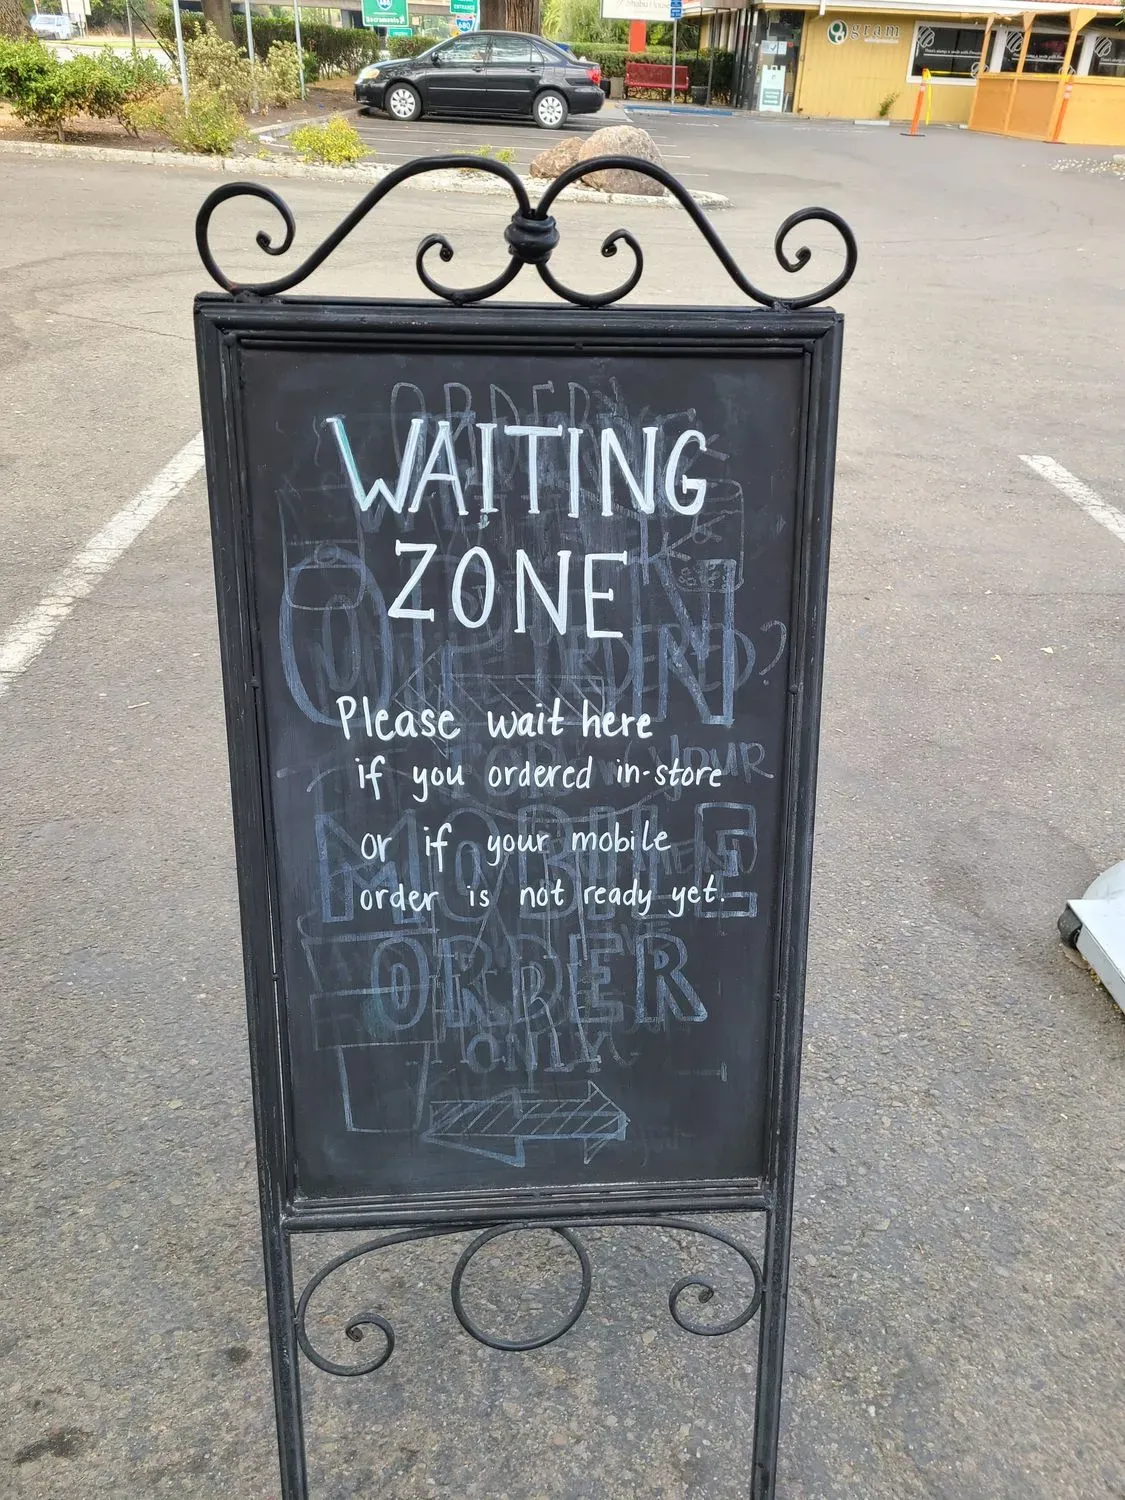 Sacramento
ENTRANCE
680
Shabu House
gram
ORDER
WAITING
ZONE
OPEN
ORDERED?
Please wait here
if you ordered in-store
FOR YOUR
or if your mobile
order is not ready yet.
MOBILE
ORDER
ONLY